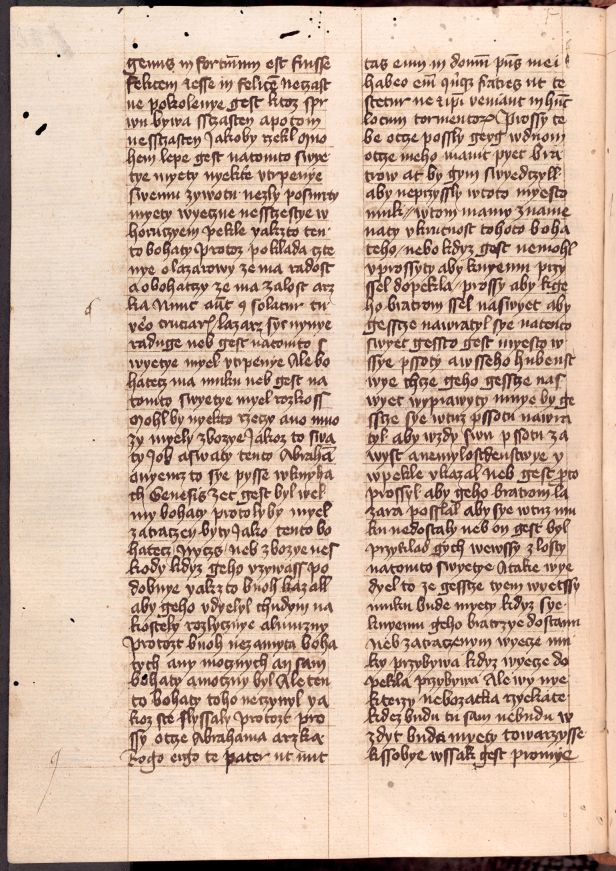 genus in fortunii est fuisse
felicem et esse in felicē neszast
ne pokolenye gest ktoz spr
wn bywa sczasten a potom
nesszasten Jakoby rzekl mno
hem lepe gest natomto swye
tye myety nyekte vtrpenye
swemu zywotu nezly posmrty
myety wyeczne nessczestye w
horuczyem pekle yakzto ten
to bohaty Protoz poklada czte
nye o lazarowy ze ma radost
a o bohatczy ze ma zalost a rz
ka Nunc aūt 9 solatur tu
vero cruciaris lazarz syc nynye
raduge neb gest natomto s
wyetye myel vtrpenye Ale bo
hatecz ma muku neb gest na
tomto swyetye myel rozkoss
Mohl by nyekto rzeczy ano mno
zy myely zbozye Jakoz to swa
ty Job a swaty tento Abraham
onyemz to sye pysse w knyha
ch Genesis zet gest byl wel
mi bohaty protoly by myel
zatraczen byty Jako tento bo
hatecz Nycz neb zbozye nes
kody kdyz geho vzywass po
dobnye yakzto buoh kazall
aby geho vdyelyl chudym na
kostely rozlycznye almuzny
Protozt buoh nezamyta boha
tych any mocznych an sam
bohaty a moczny byl Ale ten
to bohaty toho neczynyl ya
koz ste slyssaly Protozt pro
ssy otcze Abrahama a rzka
Rogo ergo te pater ut mit
tas eum in domū pr̄is mei
habeo em̄ quīqz fratres ut te
stetur ne et ip̄i veniant in hūc
locum tormentor Prossy te
be otcze possly geyg w duom
otcze meho mamt pyet bra
trow at by gym swyedczyll
aby neprzyssly w toto myesto
muk / w tom mamy zname
naty vkrutnost tohoto boha
teho / nebo kdyz gest nemohl
vprossyty aby knyemu przy
ssel dopekla / prossy aby k ge
ho bratrom ssel naswyet aby
gessczye nawratyl sye natomto
swyet gessto gest myesto w
ssye pssoty a wsseho hubenst
wye chcze geho gesscze nas
wyet wyprawyty mnye by ge
sscze sye wtuz pssotu nawra
tyl aby wzdy swu pssotu za
wyst a nemylosrdenstwye y
w pekle vkazal neb gest p̄to
prossyl aby geho bratrom la
zara posslal aby sye wtuz mu
ku nedostaly neb on gest byl
przyklad gych wewssy zlosty
natomto swyetye A take wye
dyel to ze gesscze tyem wyetssy
muku bude myety kdyz sye
knyemu geho bratrzye dostanu
Neb zatraczenym wyecze mu
ky przybywa kdyz wyecze do
pekla przybywa Ale wy nye
kterzy nebozatka rzyekate
kdez budu tu sam nebudu w
zdyt budu myety towarzysse
k ssobye wssak gest promye